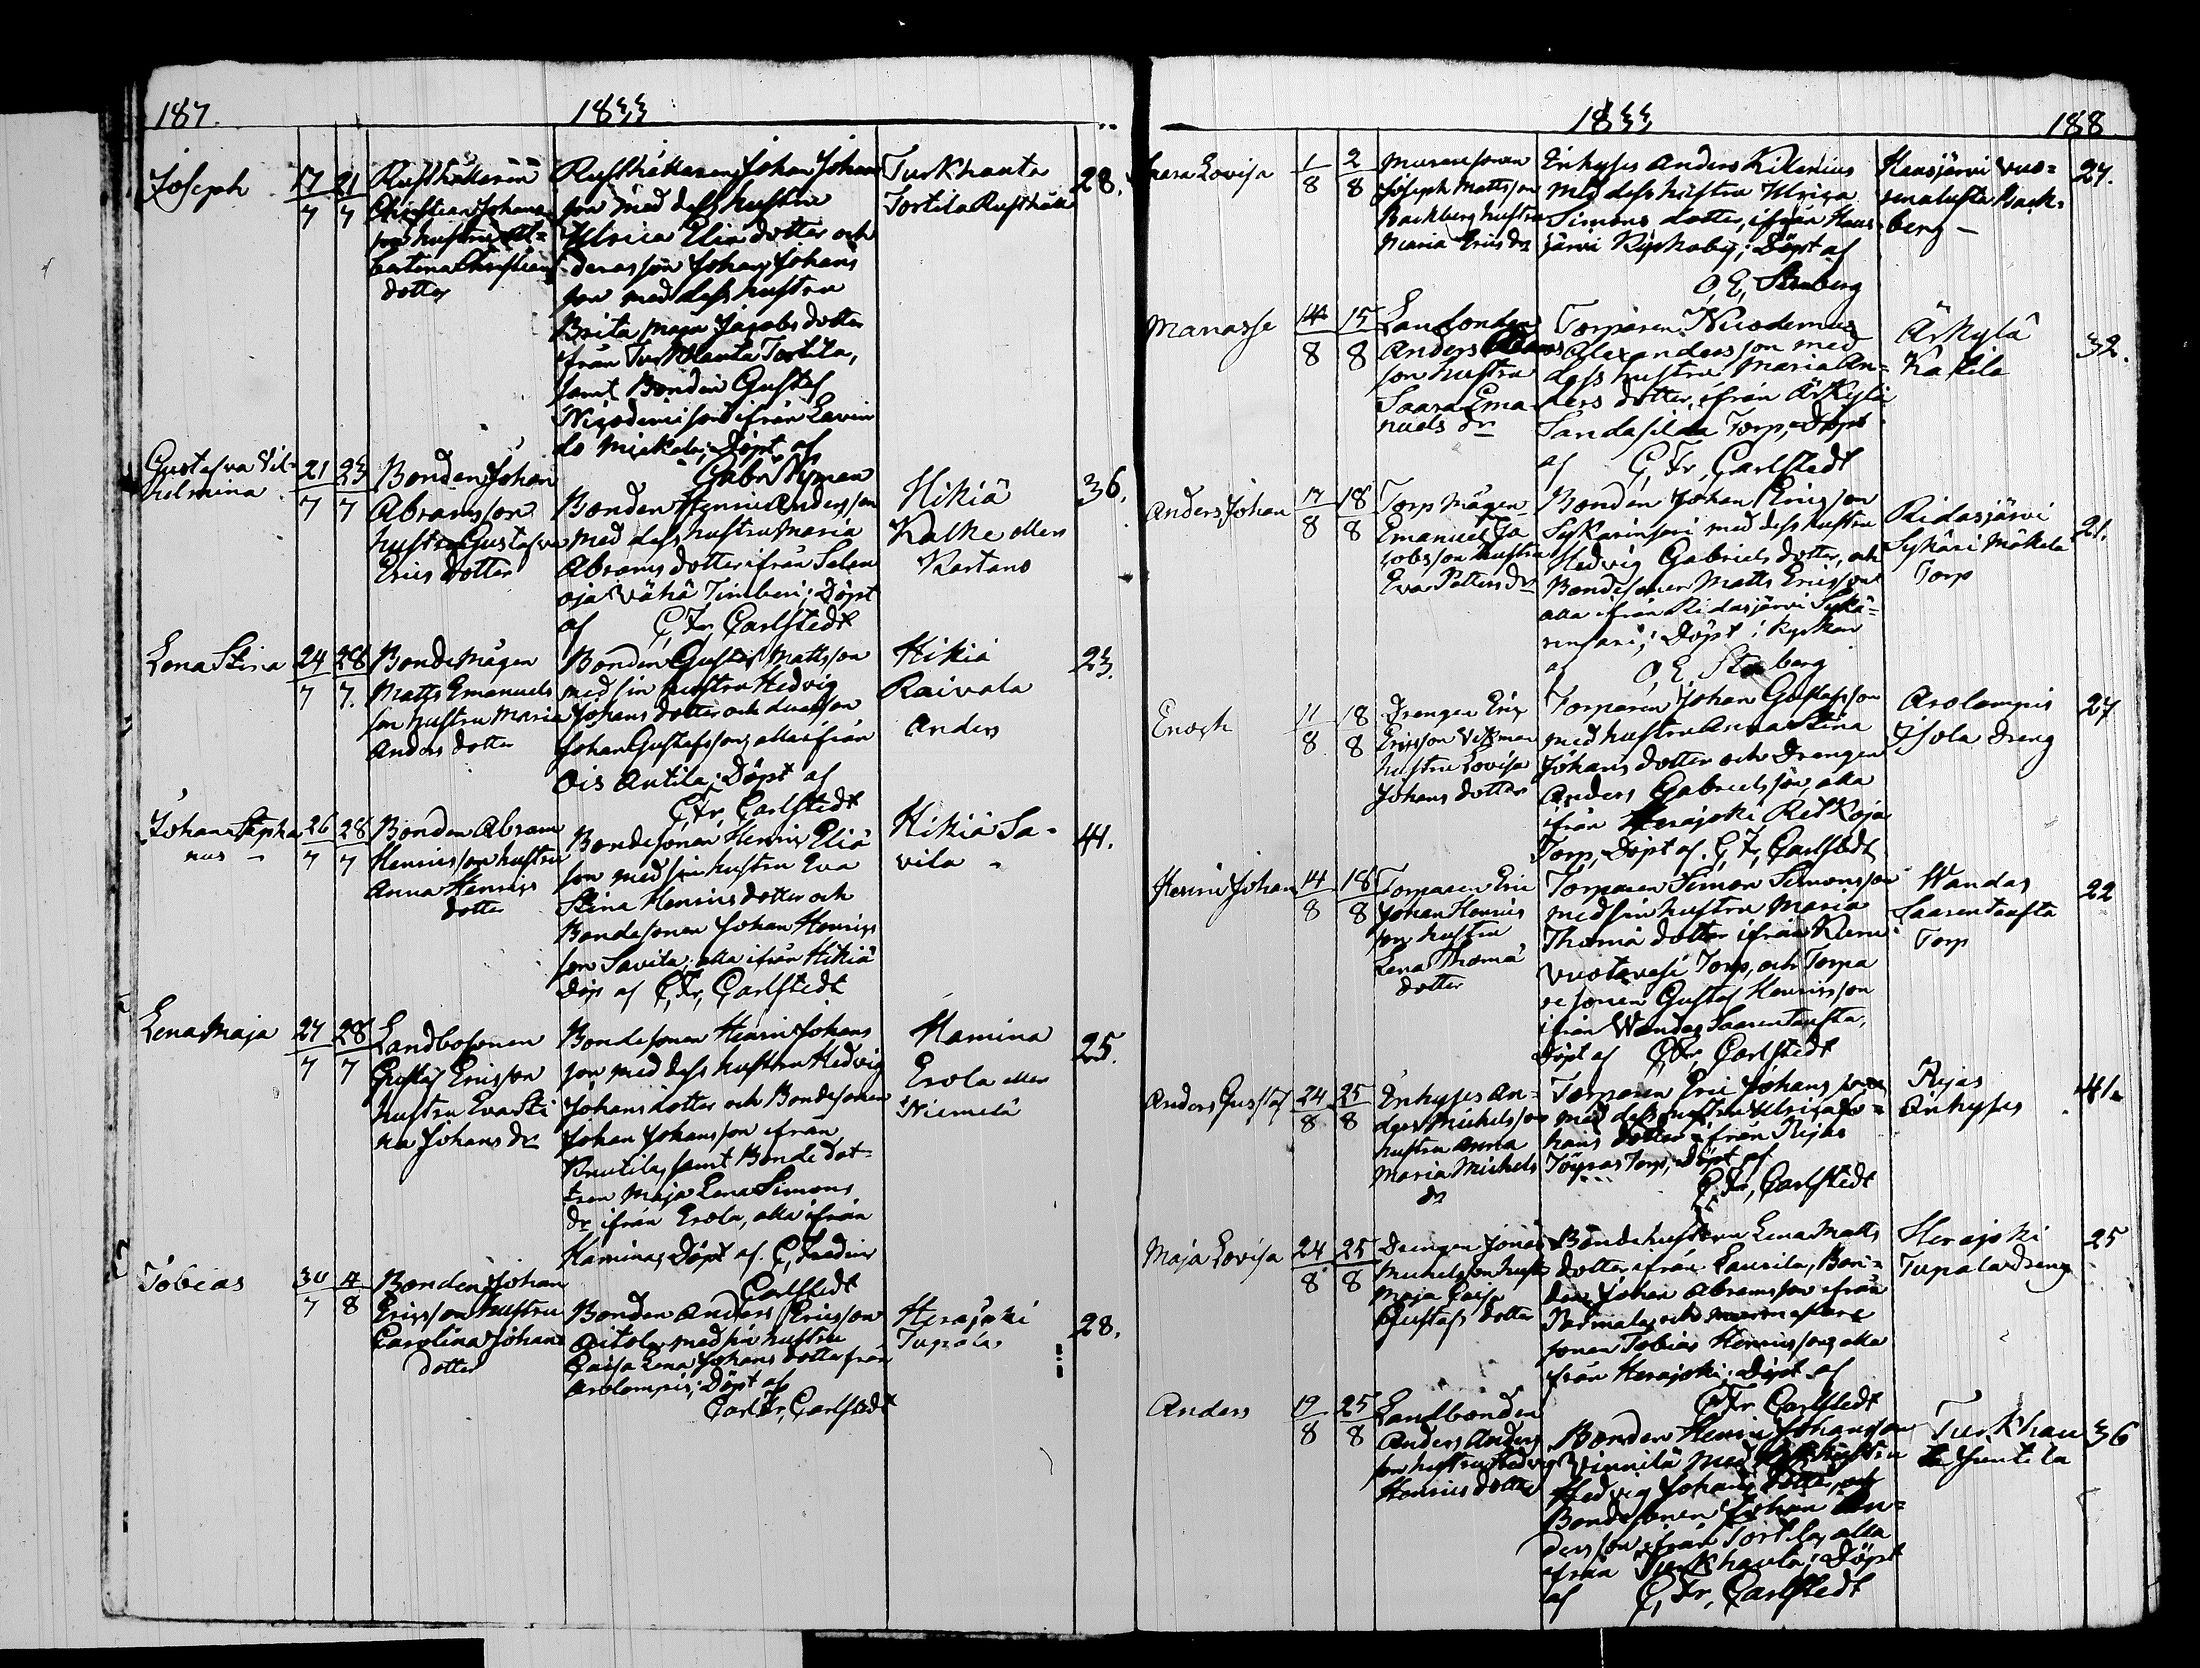 187.
1833
Joseph
17/7
21/7
Rusthållaren
Christian Johans
son hustru Al=
bertina Christians
dotter
Rusthållaren Johan Johans
son med dess hustru
Ulrica Eliæ dotter och
deras son Johan Johans
son med dess hustru
Brita Maja Jacobs dotter
ifrån Turkhauta Tortila,
samt Bonden Gustaf
Nicodemisson ifrån Lavin
do Mickola; Döpt af
Gabr Nyman
Turkhauta
Tortila Rusthåll
28.
Gustafva Vil=
helmina
21/7
23/7
Bonden Johan
Abramsson
hustru Gustafva
Erics dotter
Bonden Henric Andersson
med dess hustru Maria
Abrams dotter ifrån Salen
oja Vähä Timberi; Döpt
af C, Fr, Carlstedt
Hikiä
Kalke eller
Kartano
36.
Lena Stina
24/7
28/7.
Bondemågen
Matts Emanuels
son hustru Maria
Anders dotter
Bonden Gustaf Mattsson
med sin hustru Hedvig
Johans dotter och deras son
Johan Gustafsson, alla ifrån
Ois Antila; Döpt af
C, Fr, Carlstedt
Hikiä
Raivala
Anders
23.
Johan Stepha
nus
26/7
28/7
Bonden Abram
Henricsson hustru
Anna Henrics
dotter
Bondesonen Henric Eliæ
son med sin hustru Eva
Stina Henrics dotter och
Bondesonen Johan Henrics
son Savila; alla ifrån Hikiä
Döp af C, Fr, Carlstedt
Hikiä Sa-
vila
41.
Lena Maja
27/7
28/7
Landbosonen
Gustaf Ericsson
hustru Eva Sti
na Johans dr
Bondesonen Henric Johans
son med dess hustru Hedvig
Johans dotter och Bondesonen
Johan Johansson ifrån
Knutila, samt Bonde dot=
tren Maja Lena Simons
dr ifrån Erola, alla ifrån
Hamina, Döpt af C, Fredric
Carlstedt
Hamina
Erola eller
Niemelä
25.
Tobias
30/7
4/8
Bonden Johan
Ericsson hustru
Carolina Johans
dotter
Bonden Anders Ericsson
Aitola med sin hustru
Caisa Lena Johans dotter från
Arolampi; Döpt af
Carl Fr, Carlstedt
Herajoki
Tupala
28.
1833
188
Sara Lovisa
1/8
2/8
Muraresonen
Joseph Mattsson
Backberg hustru
Maria Erics dr
Enhyses Anders Kilenius
med dess hustru Ulrica
Simons dotter, ifrån Haus
järvi Kyrkoby; Döpt af
O, E, Stenberg
Hausjärvi
Back=
berg -
27.
Manasse
14/8
15/8
Landbonden
Anders
son hustru
Saara Ema
nuels dr
Torparen Nicodemus
Alexandersson med
dess hustru Maria An=
ders dotter, ifrån Ärkylä
Torp, Döpt
af C, Fr, Carlstedt
Ärkylä
Kakila
32.
Anders Johan
17/8
18/8
Torp Mågen
Emanuel Ja
cobsson hustru
Eva Petters dr
Bonden Johan Ericsson
med dess hustru
Hedvig Gabriels dotter, och
Bondesonen Matts Ericsson
alla ifrån Ridasjärvi Sykä=
rensari; Döpt i Kyrkan
af O, E, Stenberg
Ridasjärvi
Sykäri Mäkelä
Torp
21.
Enoch
11/8
18/8
Drengen Eric
Ericsson Vikman
hustru Lovisa
Johans dotter
Torparen Johan Gustafsson
med hustru Anna Stina
Johans dotter och Drengen
Anders Gabrielsson, alla
ifrån Herajoki Retkoja
Torp, Döpt af C, Fr, Carlstedt
Arolampi
Isola Dreng
27
Henric Johan
14/8
18/8
Torparen Eric
Johan Henrics
son hustru
Lena Thomæ
dotter
Torparen Simon Simonsson
med sin hustru Maria
Thomæ dotter ifrån Karu
Torp, och Torpa
resonen Gustaf Henricsson
ifrån Wandas Saarentausta,
Döpt af C, Fr, Carlstedt
Wandas
Saarentausta
Torp
22
Anders Gustaf
24/8
25/8
Enhyses An=
ders Michelsson
hustru Anna
Maria Michels
dr
Torparen Eric Johansson
med dess hustru Ulrica Jo=
hans dotter ifrån Rijas
Töyras Torp, Döpt af
C, Fr, Carlstedt
Rijas
Enhyses
41.
Maja Lovisa
24/8
25/8
Drengen Jonas
Michelsson hust
Maja Caisa
Gustafs dotter
Bondehustrun Lena Matts
dotter ifrån Laurila, Bon=
den Johan Abramsson ifrån
sonen Tobias Henricsson, alla
från Herajoki; Döpt af
C, Fr, Carlstedt
Herajoki
Tupala Dreng
25
Anders
19/8
25/8
Landbonden
Anders Anders
son hustru Hedvig
Henrics dotter
Bonden Henric Johansson
Vinnilä med hustru
Hedvig Johans dotter, och
Bondesonen Johan An=
dersson ifrån Tortila, alla
ifrån Turkhauta; Döpt
af C, Fr, Carlstedt
Turkhau
ta Juntila
36